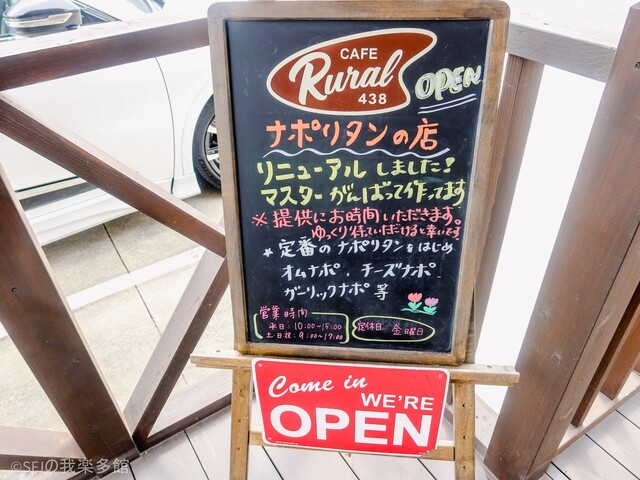 CAFE
Rural
438
OPEN
ナポリタンの店
リニューアルしました!
マスターがんばって作ってます
※提供にお時間いただきます。
ゆっくり待っていただけると幸いです
★定番のナポリタンをはじめ
オムナポ、チーズナポ
ガーリックナポ等
営業時間
平日:10:00~15:00
土日祝:9:00~17:00
定休日 金曜日
Come in
WE'RE
OPEN
©SEIの我楽多館